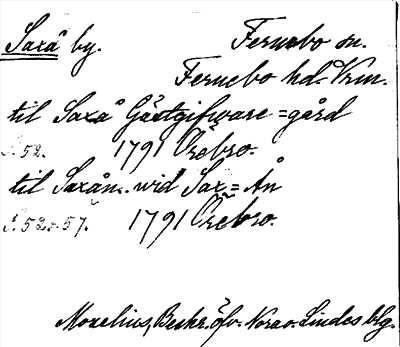 Saxå by. Fernebo sn.
Fernebo hd. Vrm.
til Saxå Gästgifware=gård
S. 52. 1791 Örebro.
til Saxån. wid Sax=Ån
S. 52 o. 57. 1791 Örebro.
Moxelius, Beskr. öfv. Nora o. Lindes blg.